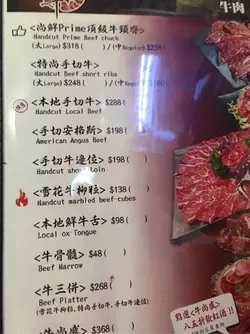 牛肉
<尚鮮Prime頂級牛頸脊>
Handcut Prime Beef chuck
(大Large) $318 (　　)/(中Regular) $238
<特尚手切牛>
Handcut Beef short ribs
(大Large) $248 (　　)/(中Regular) $180
<本地手切牛> $288(　　)
Handcut Local Beef
<手切安格斯> $198(　　)
American Angus Beef
<手切牛邊位> $198(　　)
Handcut short Loin
<雪花牛柳粒> $138(　　)
Handcut marbled beef-cubes
<本地鮮牛舌> $98(　　)
Local ox Tongue
<牛骨髓> $48(　　)
Beef Marrow
<牛三併> $268(　　)
Beef Platter
(雪花牛柳粒, 特尚手切牛, 手切牛邊位)
<牛尚盛> $368(　　)
點選<牛尚盛>
八五折飲紅酒!!